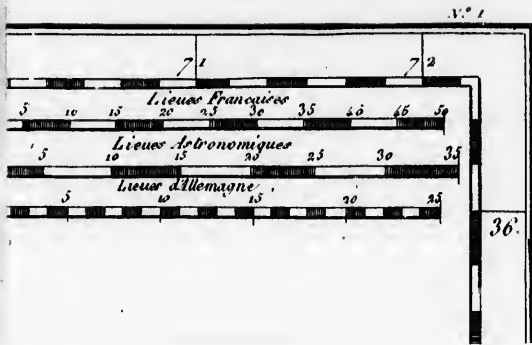 N.º 1
71 72
Lieues Françaises
5 10 15 20 25 30 35 40 45 50
Lieues Astronomiques
5 10 15 20 25 30 35
Lieues d'Allemagne
5 10 15 20 25
36.